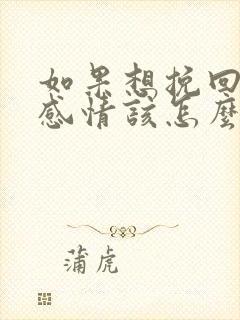 如果想挽回
感情该怎麼
蒲虎